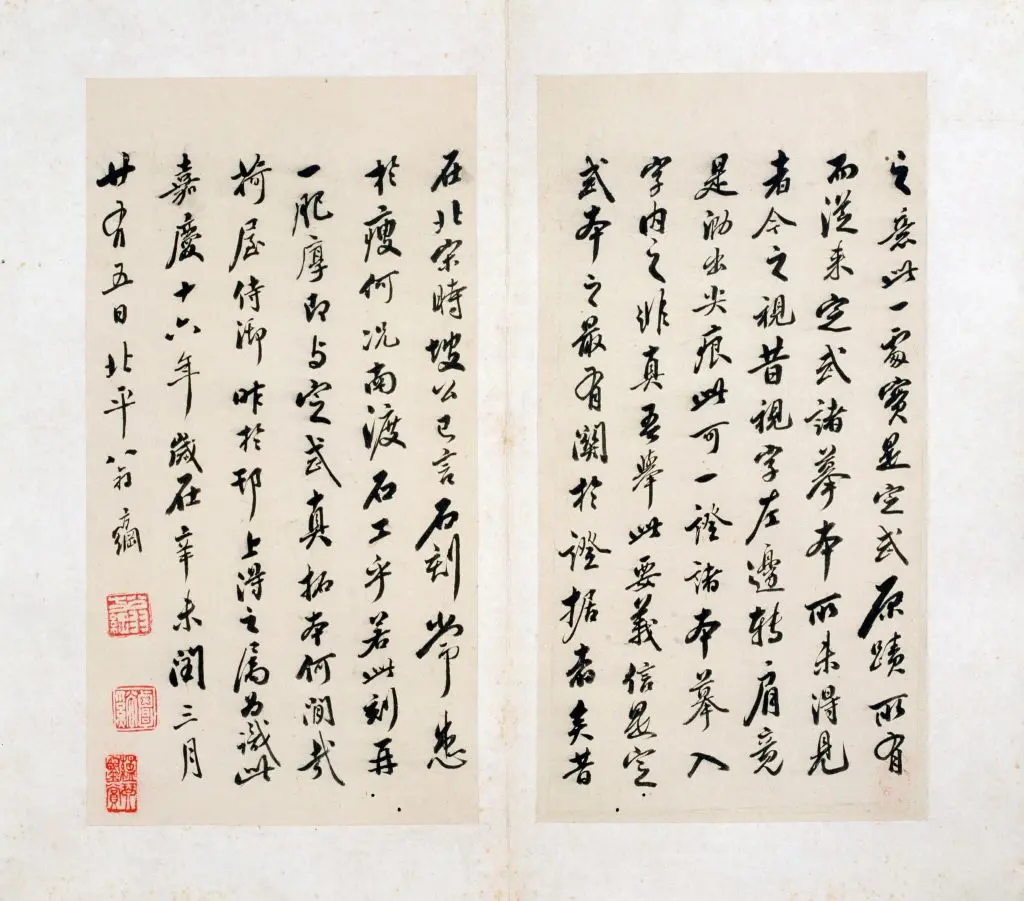 之意此一處實是定武原蹟所有
而從来定武諸摹本所未得見
者今之視昔視字左邊轉肩竟
是泐出尖痕此可一證諸本摹入
字内之非真吾舉此要義信是定
武本之最有關於證据者矣昔
在北宋時坡公已言石刻常患
於瘦何况南渡石工乎若此刻再
一肥厚即与定武真拓本何閒哉
椅屋侍御昨於邗上得之属為識此
嘉慶十六年歲在辛未閏三月
廿有五日北平翁方綱